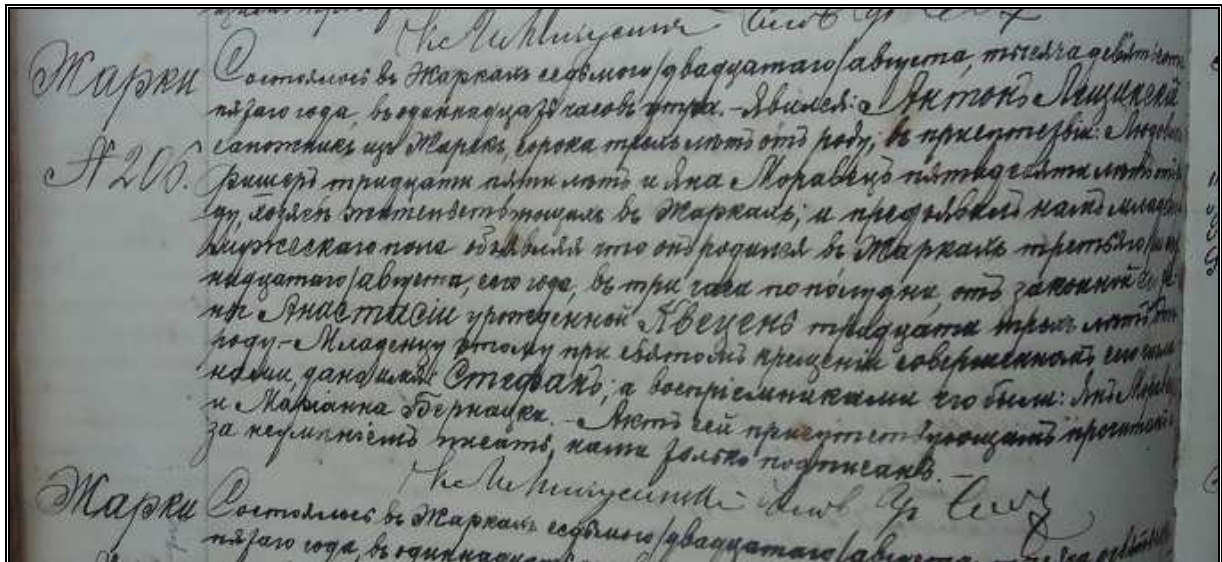 Жарки
№ 206.
Состоялось въ Жаркахъ седьмого/двадцатаго/августа, тысяча девятисотъ
пятаго года, въ одиннадцать часовъ утра. - Явился: Антонъ Лещинскій
сапожникъ изъ Жарекъ, сорока трехъ лѣтъ отъ роду, въ присутствіи: Людовика
Фишеръ тридцати пяти лѣтъ и Яна Моравецъ пятидесяти лѣтъ отъ ро
ду, хозяевъ жительствующихъ въ Жаркахъ; и предъявилъ намъ младенца
мужескаго пола объявляя что онъ родился въ Жаркахъ третьяго/шест
надцатаго/августа, сего года, въ три часа пополудни, отъ законной его же
ны Анастасіи урожденной Квецень тридцати трехъ лѣтъ отъ
роду - Младенцу этому при святомъ крещеніи совершенномъ сего числа
нами, дано имя: Стефанъ; а воспріемниками его были: Янъ Моравецъ
и Маріанна Бернацка. - Актъ сей присутствующимъ прочитанъ
за неумѣніемъ писать, нами только подписанъ. -
Жарки
Состоялось въ Жаркахъ седьмого/двадцатаго/августа, тысяча девятисотъ
пятаго года, въ одиннадцать